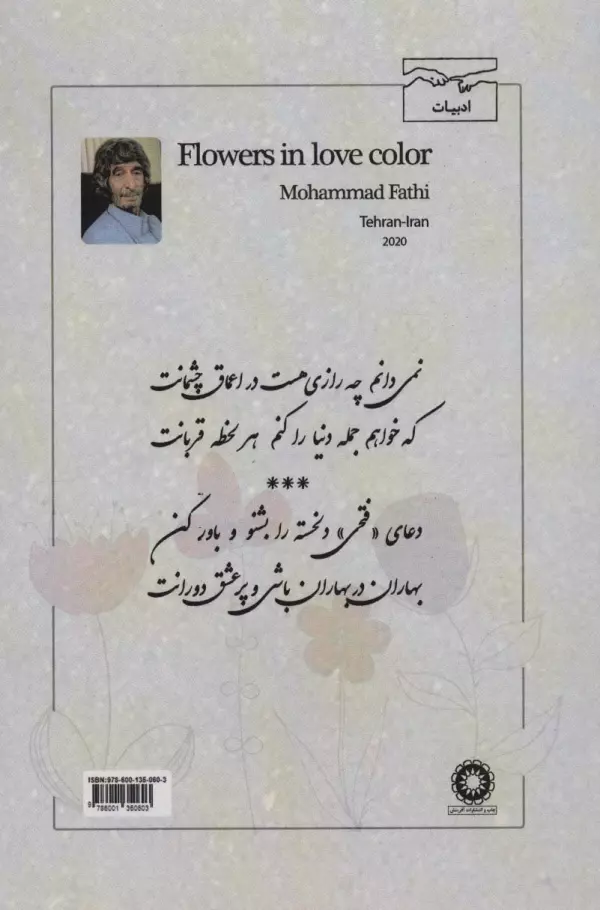 ادبیات
Flowers in love color
Mohammad Fathi
Tehran-Iran
2020
نمی دانم چه رازی هست در اعماق چشمانت
که خواهم جمله دنیا را کنم هر لحظه قربانت
***
دعای «فتحی» دلخسته را بشنو و باور کن
بهاران در بهاران باشی و پر عشق دورانت
ISBN:978-600-135-060-3